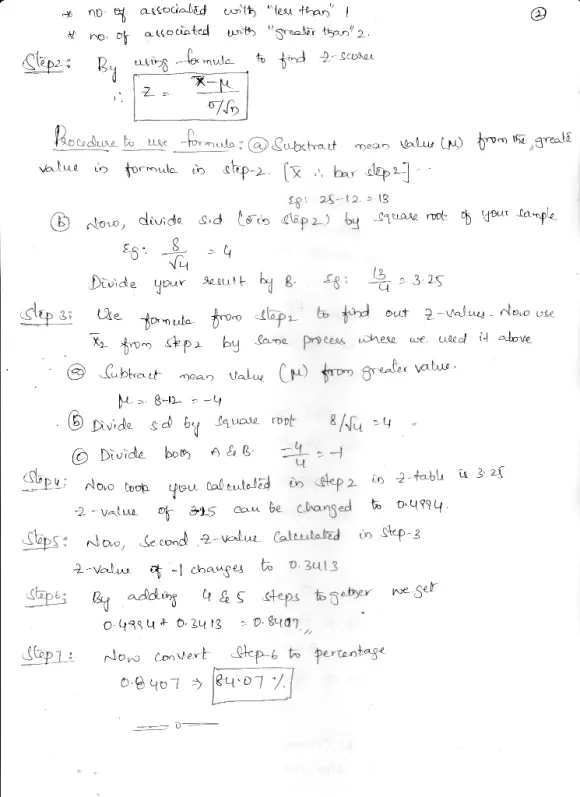 * no. of associated with "less than" 1
②
* no. of associated with "greater than" 2.
Step2: By using formula to find z-scores
∴ Z = x̄-μ / σ/√n
Procedure to use formula: ⓐ Substract mean value (μ) from the greate
value in formula in step-2. [x̄ ∴ bar step 2] --
Eg: 25-12 = 13
ⓑ Now, divide s.d (σ in step 2) by square root of your sample
Eg: 8/√4 = 4
Divide your result by B. Eg: 13/4 = 3.25
Step 3: Use formula from step2 to find out z-values. Now use
x̄2 from step 2 by same process where we used it above
ⓐ Subtract mean value (μ) from greater value.
μ = 8-12 = -4
ⓑ Divide s.d by square root 8/√4 = 4
ⓒ Divide both A & B. -4/4 = -1
Step4: Now look you calculated in step 2 in z-table is 3.25
-z-value of 325 can be changed to 0.4994.
Step5: Now, Second z-value calculated in step-3
z-value of -1 changes to 0.3413
Step6: By adding 4 & 5 steps together we get
0.4994 + 0.3413 = 0.8407
Step7: Now convert step-6 to percentage
0.8407 ⇒ 84.07 %